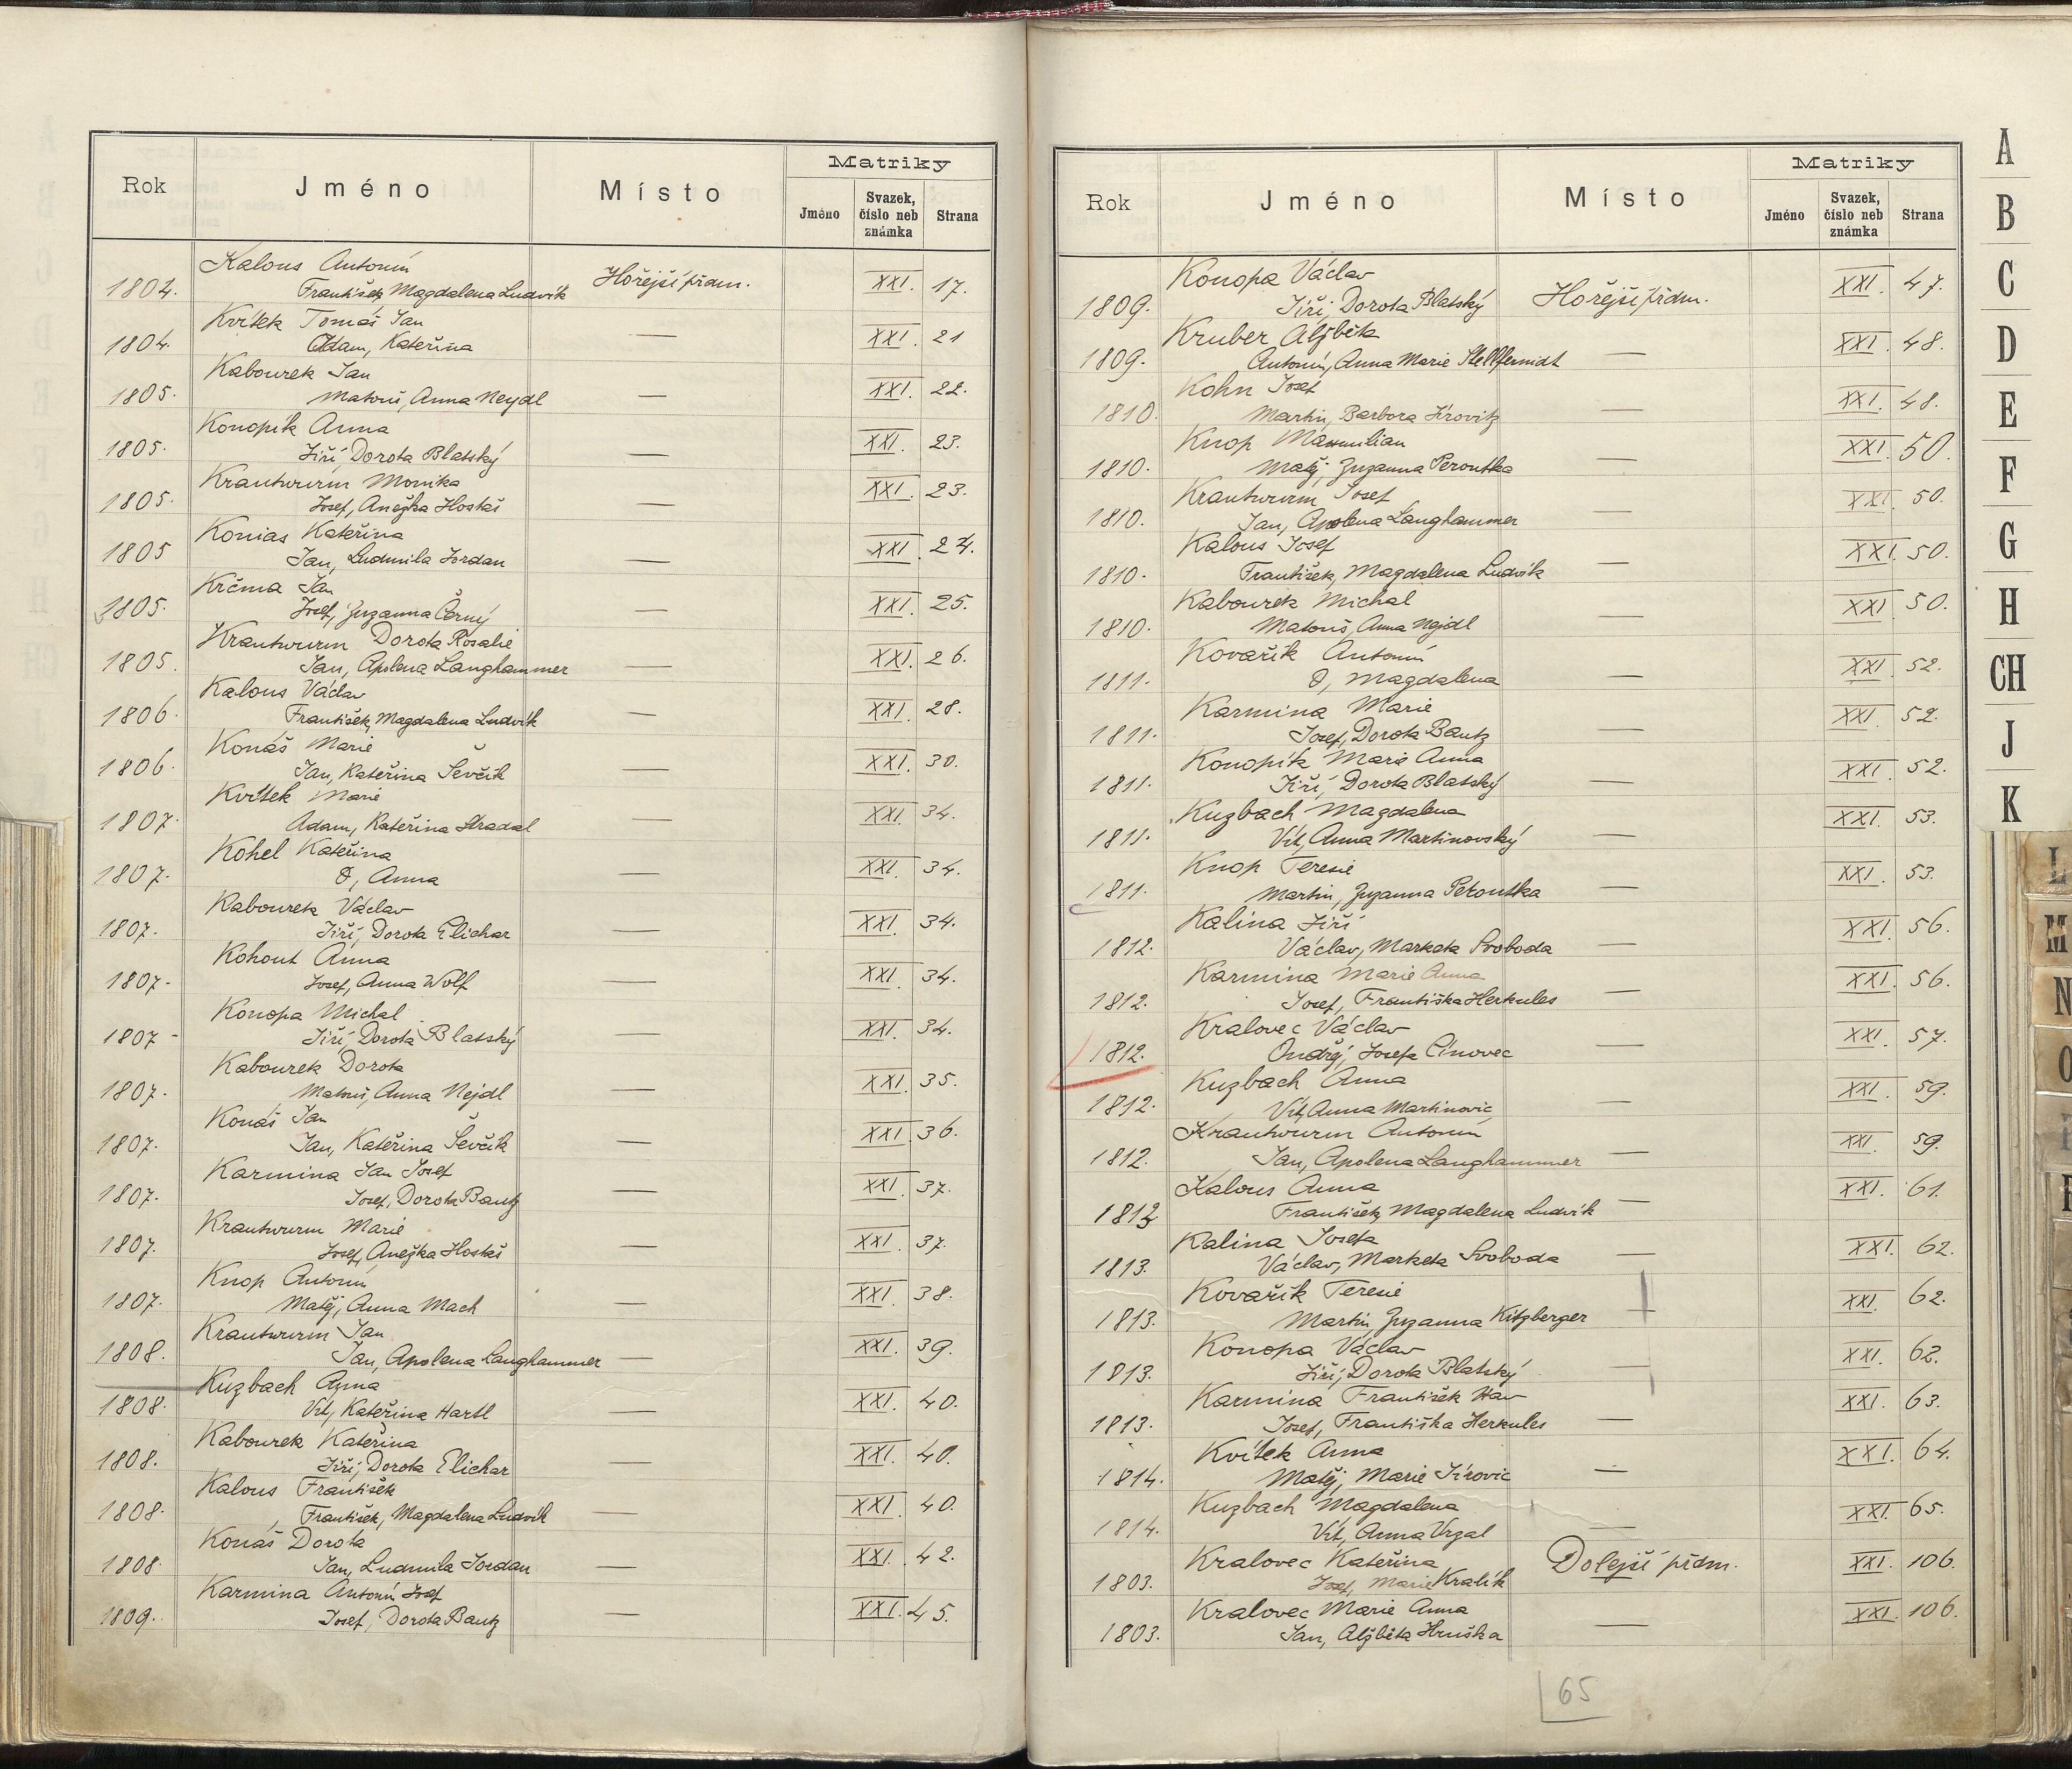 Rok Jméno Místo Matriky
Jméno Svazek, číslo neb známka Strana
Kalous Antonín
1804. František, Magdalena Ludvík Hořejší předm. XXI. 17.
Kvítek Tomáš Jan
1804. Adam, Kateřina — XXI. 21
Kabourek Jan
1805. Matouš, Anna Neydl — XXI. 22.
Konopík Anna
1805. Jiří, Dorota Blatský — XXI. 23.
Krautwurm Monika
1805. Josef, Anežka Hostaš — XXI. 23.
Konias Kateřina
1805 Jan, Ludmila Jordan — XXI. 24.
Krčma Jan
1805. Josef, Zuzanna Černý — XXI. 25.
Krautwurm Dorota Rosalie
1805. Jan, Apolena Langhammer — XXI. 26.
Kalous Václav
1806. František, Magdalena Ludvík — XXI. 28.
Konáš Marie
1806. Jan, Kateřina Ševčík — XXI. 30.
Kvítek Marie
1807. Adam, Kateřina Hradal — XXI. 34.
Kohel Kateřina
1807. O, Anna — XXI. 34.
Kabourek Václav
1807. Jiří, Dorota Elichar — XXI. 34.
Kohout Anna
1807. Josef, Anna Wolf — XXI. 34.
Konopa Michal
1807 Jiří, Dorota Blatský — XXI. 34.
Kabourek Dorota
1807. Matouš, Anna Nejdl — XXI. 35.
Konáš Jan
1807. Jan, Kateřina Ševčík — XXI. 36.
Karmina Jan Josef
1807. Josef, Dorota Bautz — XXI. 37.
Krautwurm Marie
1807. Josef, Anežka Hostaš — XXI. 37.
Knop Antonín
1807. Matěj, Anna Mach — XXI. 38.
Krautwurm Jan
1808. Jan, Apolena Langhammer — XXI. 39.
Kuzbach Anna
1808. Vít, Kateřina Hartl — XXI. 40.
Kabourek Kateřina
1808. Jiří, Dorota Elichar — XXI. 40.
Kalous František
1808. František, Magdalena Ludvík — XXI. 40.
Konáš Dorota
1808. Jan, Ludmila Jordan — XXI. 42.
Karmina Antonín Josef
1809. Josef, Dorota Bautz — XXI. 45.
Rok Jméno Místo Matriky
Jméno Svazek, číslo neb známka Strana
Konopa Václav
1809. Jiří, Dorota Blatský Hořejší předm. XXI. 47.
Kruber Alžběta
1809. Antonín, Anna Marie — XXI. 48.
Kohn Josef
1810. Martin, Barbora Jírovitz — XXI. 48.
Knop Maxmilian
1810. Matěj, Zuzanna Peroutka — XXI. 50.
Krautwurm Josef
1810. Jan, Apolena Langhammer — XXI. 50.
Kalous Josef
1810. František, Magdalena Ludvík — XXI. 50.
Kabourek Michal
1810. Matouš, Anna Nejdl — XXI. 50.
Kovařík Antonín
1811. O, Magdalena — XXI. 52.
Karmina Marie
1811. Josef, Dorota Bautz — XXI. 52.
Konopík Marie Anna
1811. Jiří, Dorota Blatský — XXI. 52.
Kuzbach Magdalena
1811. Vít, Anna Martinovský — XXI. 53.
Knop Teresie
1811. Martin, Zuzanna Peroutka — XXI. 53.
Kalina Jiří
1812. Václav, Marketa Svoboda — XXI. 56.
Karmina Marie Anna
1812. Josef, Františka Herkules — XXI. 56.
Kralovec Václav
1812. Ondřej, Josefa Cínovec — XXI. 57.
Kuzbach Anna
1812. Vít, Anna Martinovic — XXI. 59.
Krautwurm Antonín
1812. Jan, Apolena Langhammer — XXI. 59.
Kalous Anna
1813 František, Magdalena Ludvík — XXI. 61.
Kalina Josefa
1813. Václav, Marketa Svoboda — XXI. 62.
Kovařík Teresie
1813. Martin, Zuzanna Kitzberger — XXI. 62.
Konopa Václav
1813. Jiří, Dorota Blatský — XXI. 62.
Karmina František
1813. Josef, Františka Herkules — XXI. 63.
Kvítek Anna
1814. Matěj, Marie Jírovic — XXI. 64.
Kuzbach Magdalena
1814. Vít, Anna Vrzal — XXI. 65.
Kralovec Kateřina
1803. Josef, Marie Kralík Dolejší předm. XXI. 106.
Kralovec Marie Anna
1803. Jan, Alžběta Hruška — XXI. 106.
65
A
B
C
D
E
F
G
H
CH
J
K
L
M
N
O